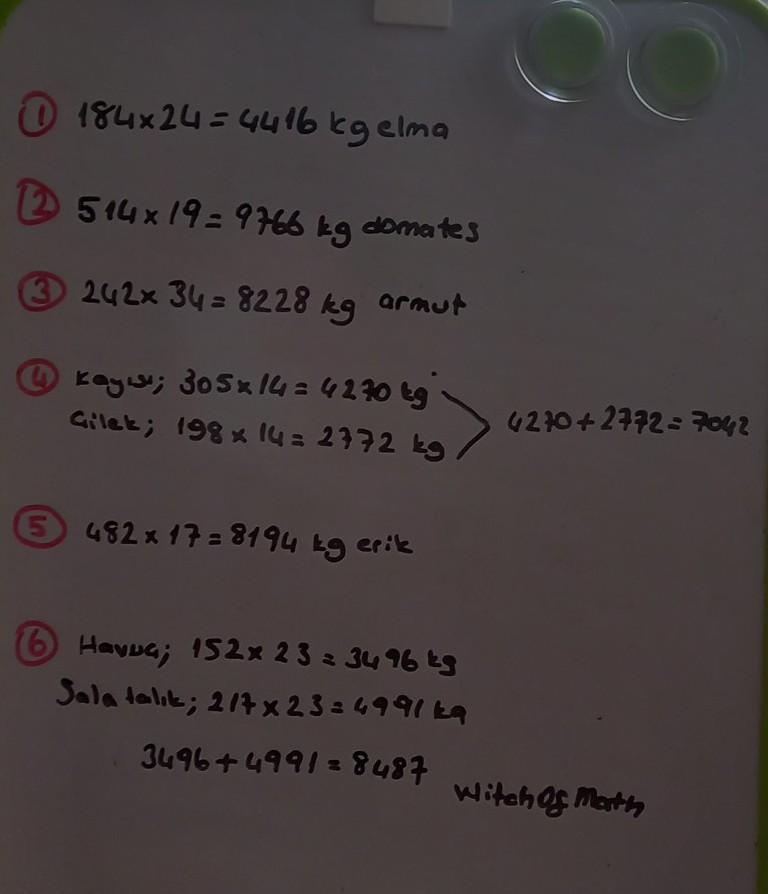 1 184x24=4416 kg elma
2 514x19=9766 kg domates
3 242x34=8228 kg armut
4 Kayısı; 305x14=4270 kg
Çilek; 198x14=2772 kg
4270+2772=7042
5 482x17=8194 kg erik
6 Havuç; 152x23=3496 kg
Salatalık; 217x23=4991 kg
3496+4991=8487
WitchOfMath